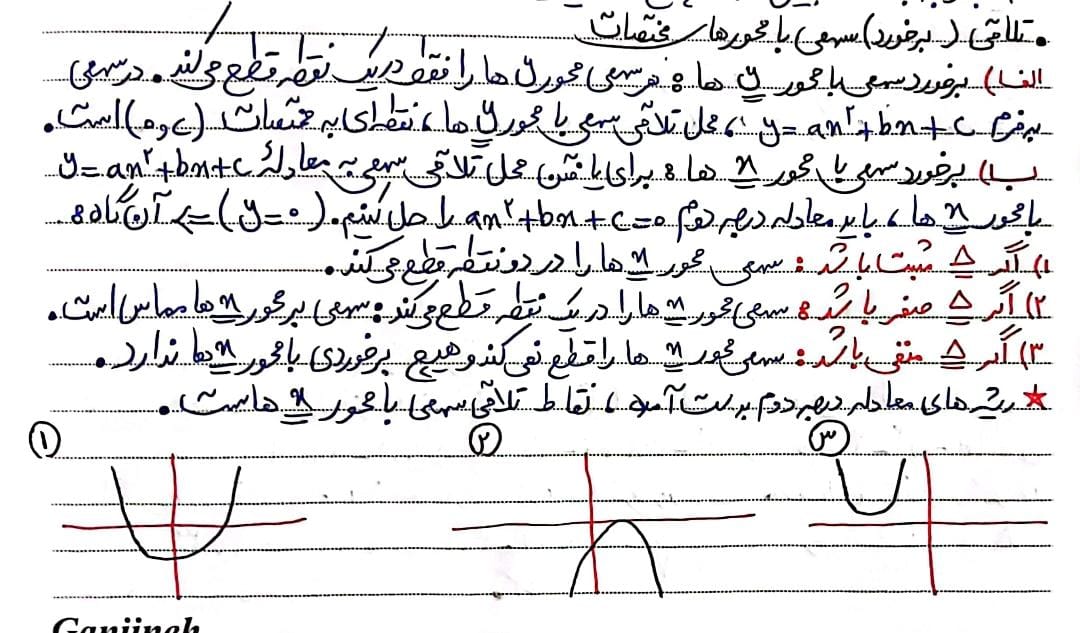 • تلاقی (برخورد) سهمی با محورهای مختصات
الف) برخورد سهمی با محور y ها : هر سهمی محور y ها را فقط در یک نقطه قطع می‌کند. در سهمی
به فرم y = ax² + bx + c ، محل تلاقی سهمی با محور y ها ، نقطه‌ای به مختصات (0,c) است.
ب) برخورد سهمی با محور x ها : برای یافتن محل تلاقی سهمی به معادلهٔ y = ax² + bx + c
با محور x ها ، باید معادله درجه دوم ax² + bx + c = 0 را حل کنیم. (y=0) => آن گاه :
۱) اگر Δ مثبت باشد : سهمی محور x ها را در دو نقطه قطع می‌کند.
۲) اگر Δ صفر باشد : سهمی محور x ها را در یک نقطه قطع می‌کند : سهمی بر محور x ها مماس است.
۳) اگر Δ منفی باشد : سهمی محور x ها را قطع نمی کند و هیچ برخوردی با محور x ها ندارد.
★ ریشه های معادله درجه دوم بدست آمده ، نقاط تلاقی سهمی با محور x هاست.
① ② ③
Ganjineh